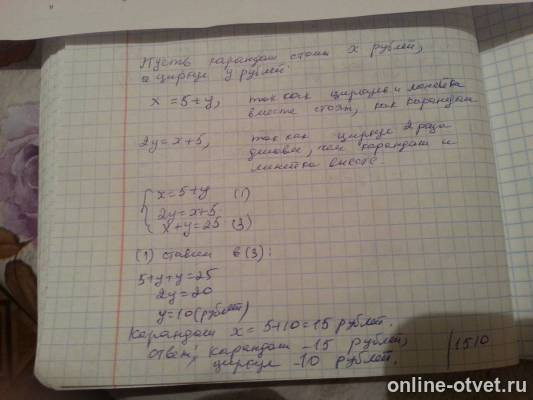 Пусть карандаш стоит x рублей,
а циркуль y рублей
x = 5 + y, так как циркуль и линейка
вместе стоят, как карандаш
2y = x + 5, так как циркуль 2 раза
дешевле, чем карандаш и
линейка вместе.
x = 5 + y (1)
2y = x + 5
x + y = 25 (3)
(1) ставим в (3):
5 + y + y = 25
2y = 20
y = 10 (рублей)
Карандаш x = 5 + 10 = 15 рублей.
Ответ, карандаш - 15 рублей,
циркуль - 10 рублей.
15 10
online-otvet.ru